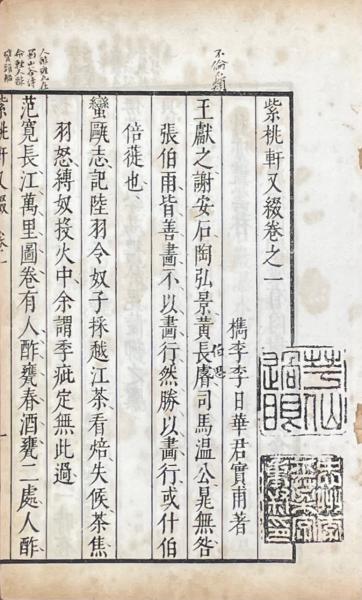 紫桃軒又綴卷之一
檇李李日華君實甫著
王獻之謝安石陶弘景黃長睿司馬溫公晁無咎
張伯雨皆善畫不以畫行然勝以畫行或什伯
倍蓰也
蠻甌志記陸羽令奴子採越江茶看焙失候茶焦
羽怒縛奴投火中余謂季疵定無此過
范寬長江萬里圖卷有人酢甕春酒甕二處人酢
紫桃軒又綴 卷一
不倫不類
伯思
過眼